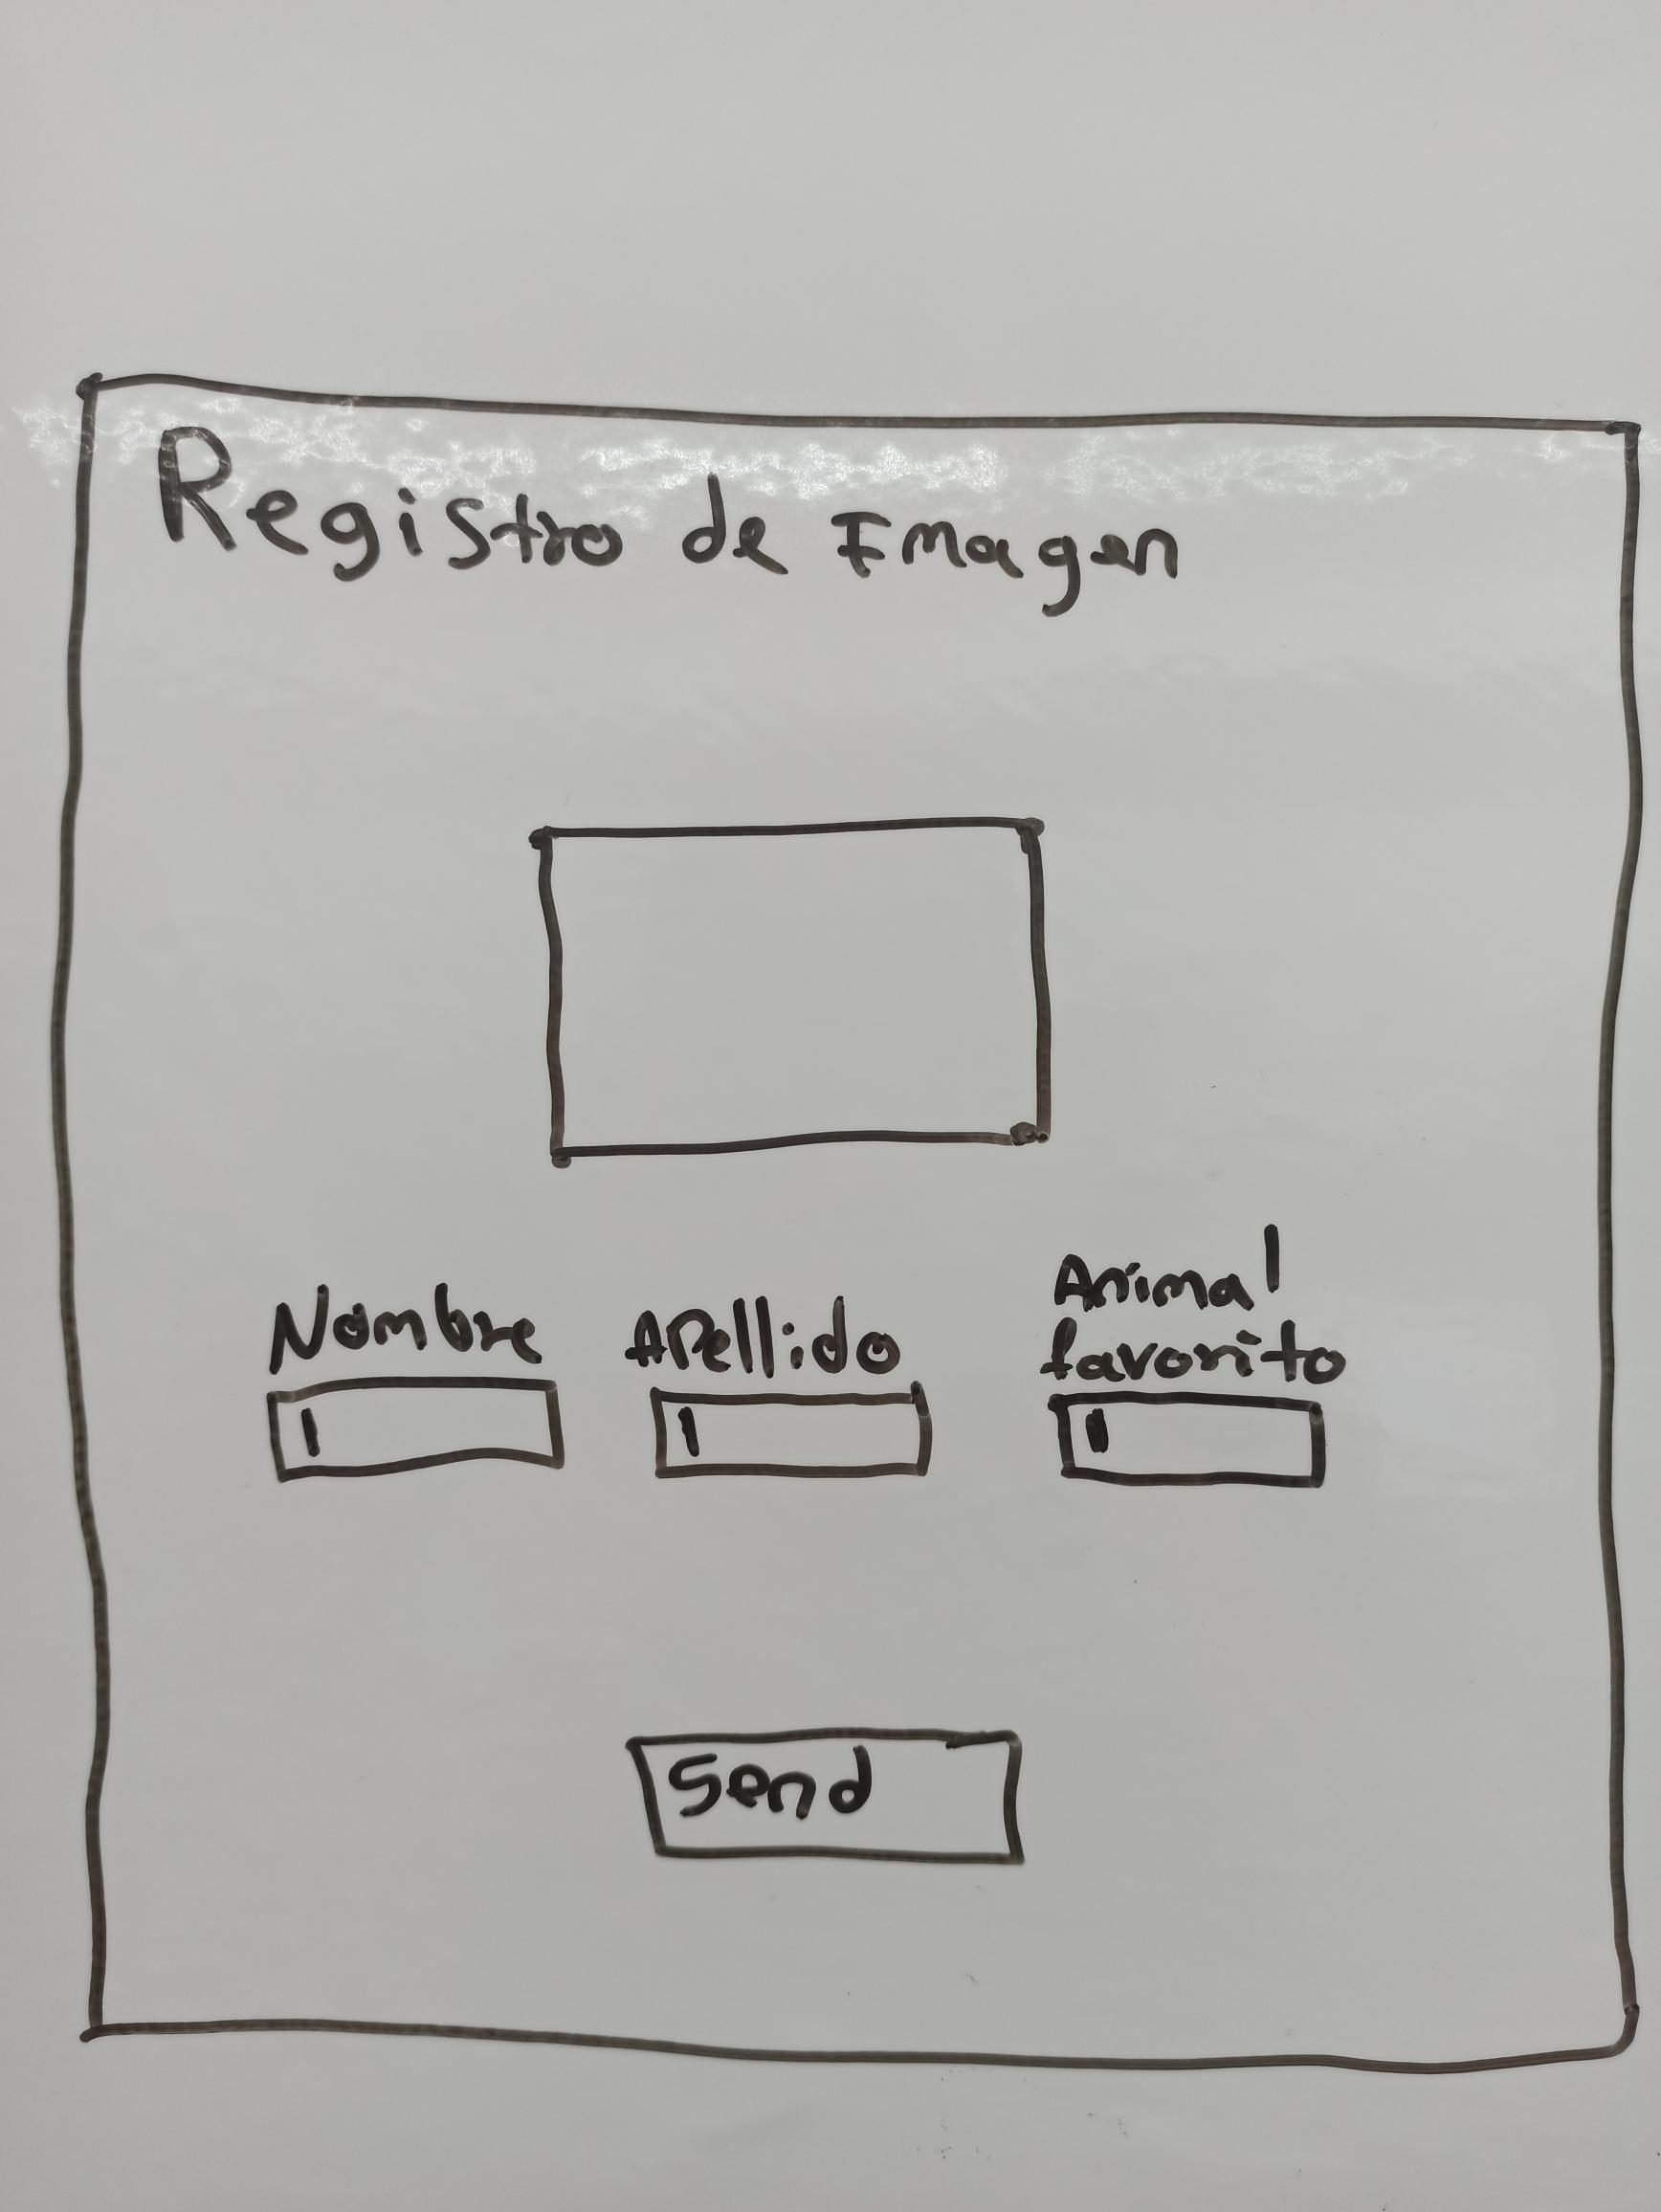 Registro de Imagen
Nombre
Apellido
Animal
favorito
Send